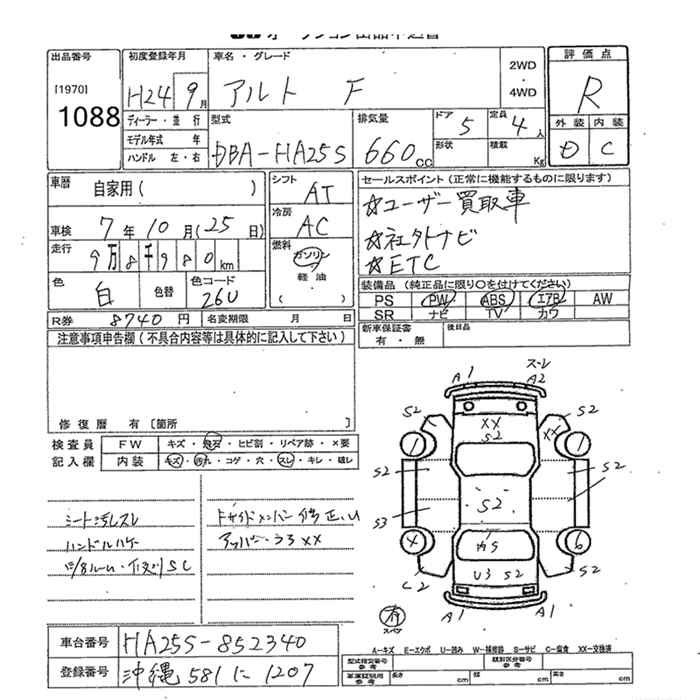 出品番号
[1970]
1088
初度登録年月
H24 9月
車名・グレード
アルト F
2WD
・
4WD
評価点
R
ディーラー・並行
モデル年式 年
ハンドル 左・右
型式
DBA-HA25S
排気量
660cc
ドア
5
定員
4人
形状
積載
Kg
外装 内装
D C
車歴
自家用( )
車検 7年10月(25日)
走行
9万8千980km
色
白
色替
色コード
26U
シフト
AT
冷房
AC
燃料
ガソリン
・
軽油
( )
セールスポイント(正常に機能するものに限ります)
☆ユーザー買取車
☆社外ナビ
☆ETC
装備品(純正品に限り○を付けてください)
PS PW ABS エアB AW
SR ナビ TV カワ
R券 8740円 名変期限 月 日
新車保証書
有・無
後日品
注意事項申告欄(不具合内容等は具体的に記入して下さい)
修復歴 有〔箇所 〕
検査員
記入欄
FW キズ・飛石・ヒビ割・リペア跡・×要
内装 キズ・汚れ・コゲ・穴・スレ・キレ・破レ
シート汚レスレ
ハンドルハゲ
ルーム・下廻りSC
アッパー・コアXX
A1
スーレ
A2
S2
XX
S2
S2
XX
1
1
S2
S2
S2
S2
S3
4
6
内S
U3 S2
C2
S2
A1
A1
有
スペア
A-キズ E-エクボ U-凹み W-補修跡 S-サビ C-腐食 XX-交換済
車台番号
HA25S-852340
登録番号
沖縄 581 に 1207
型式指定番号
参考
類別区分番号
参考
車庫証明用
参考
長さ cm
幅 cm
高さ cm